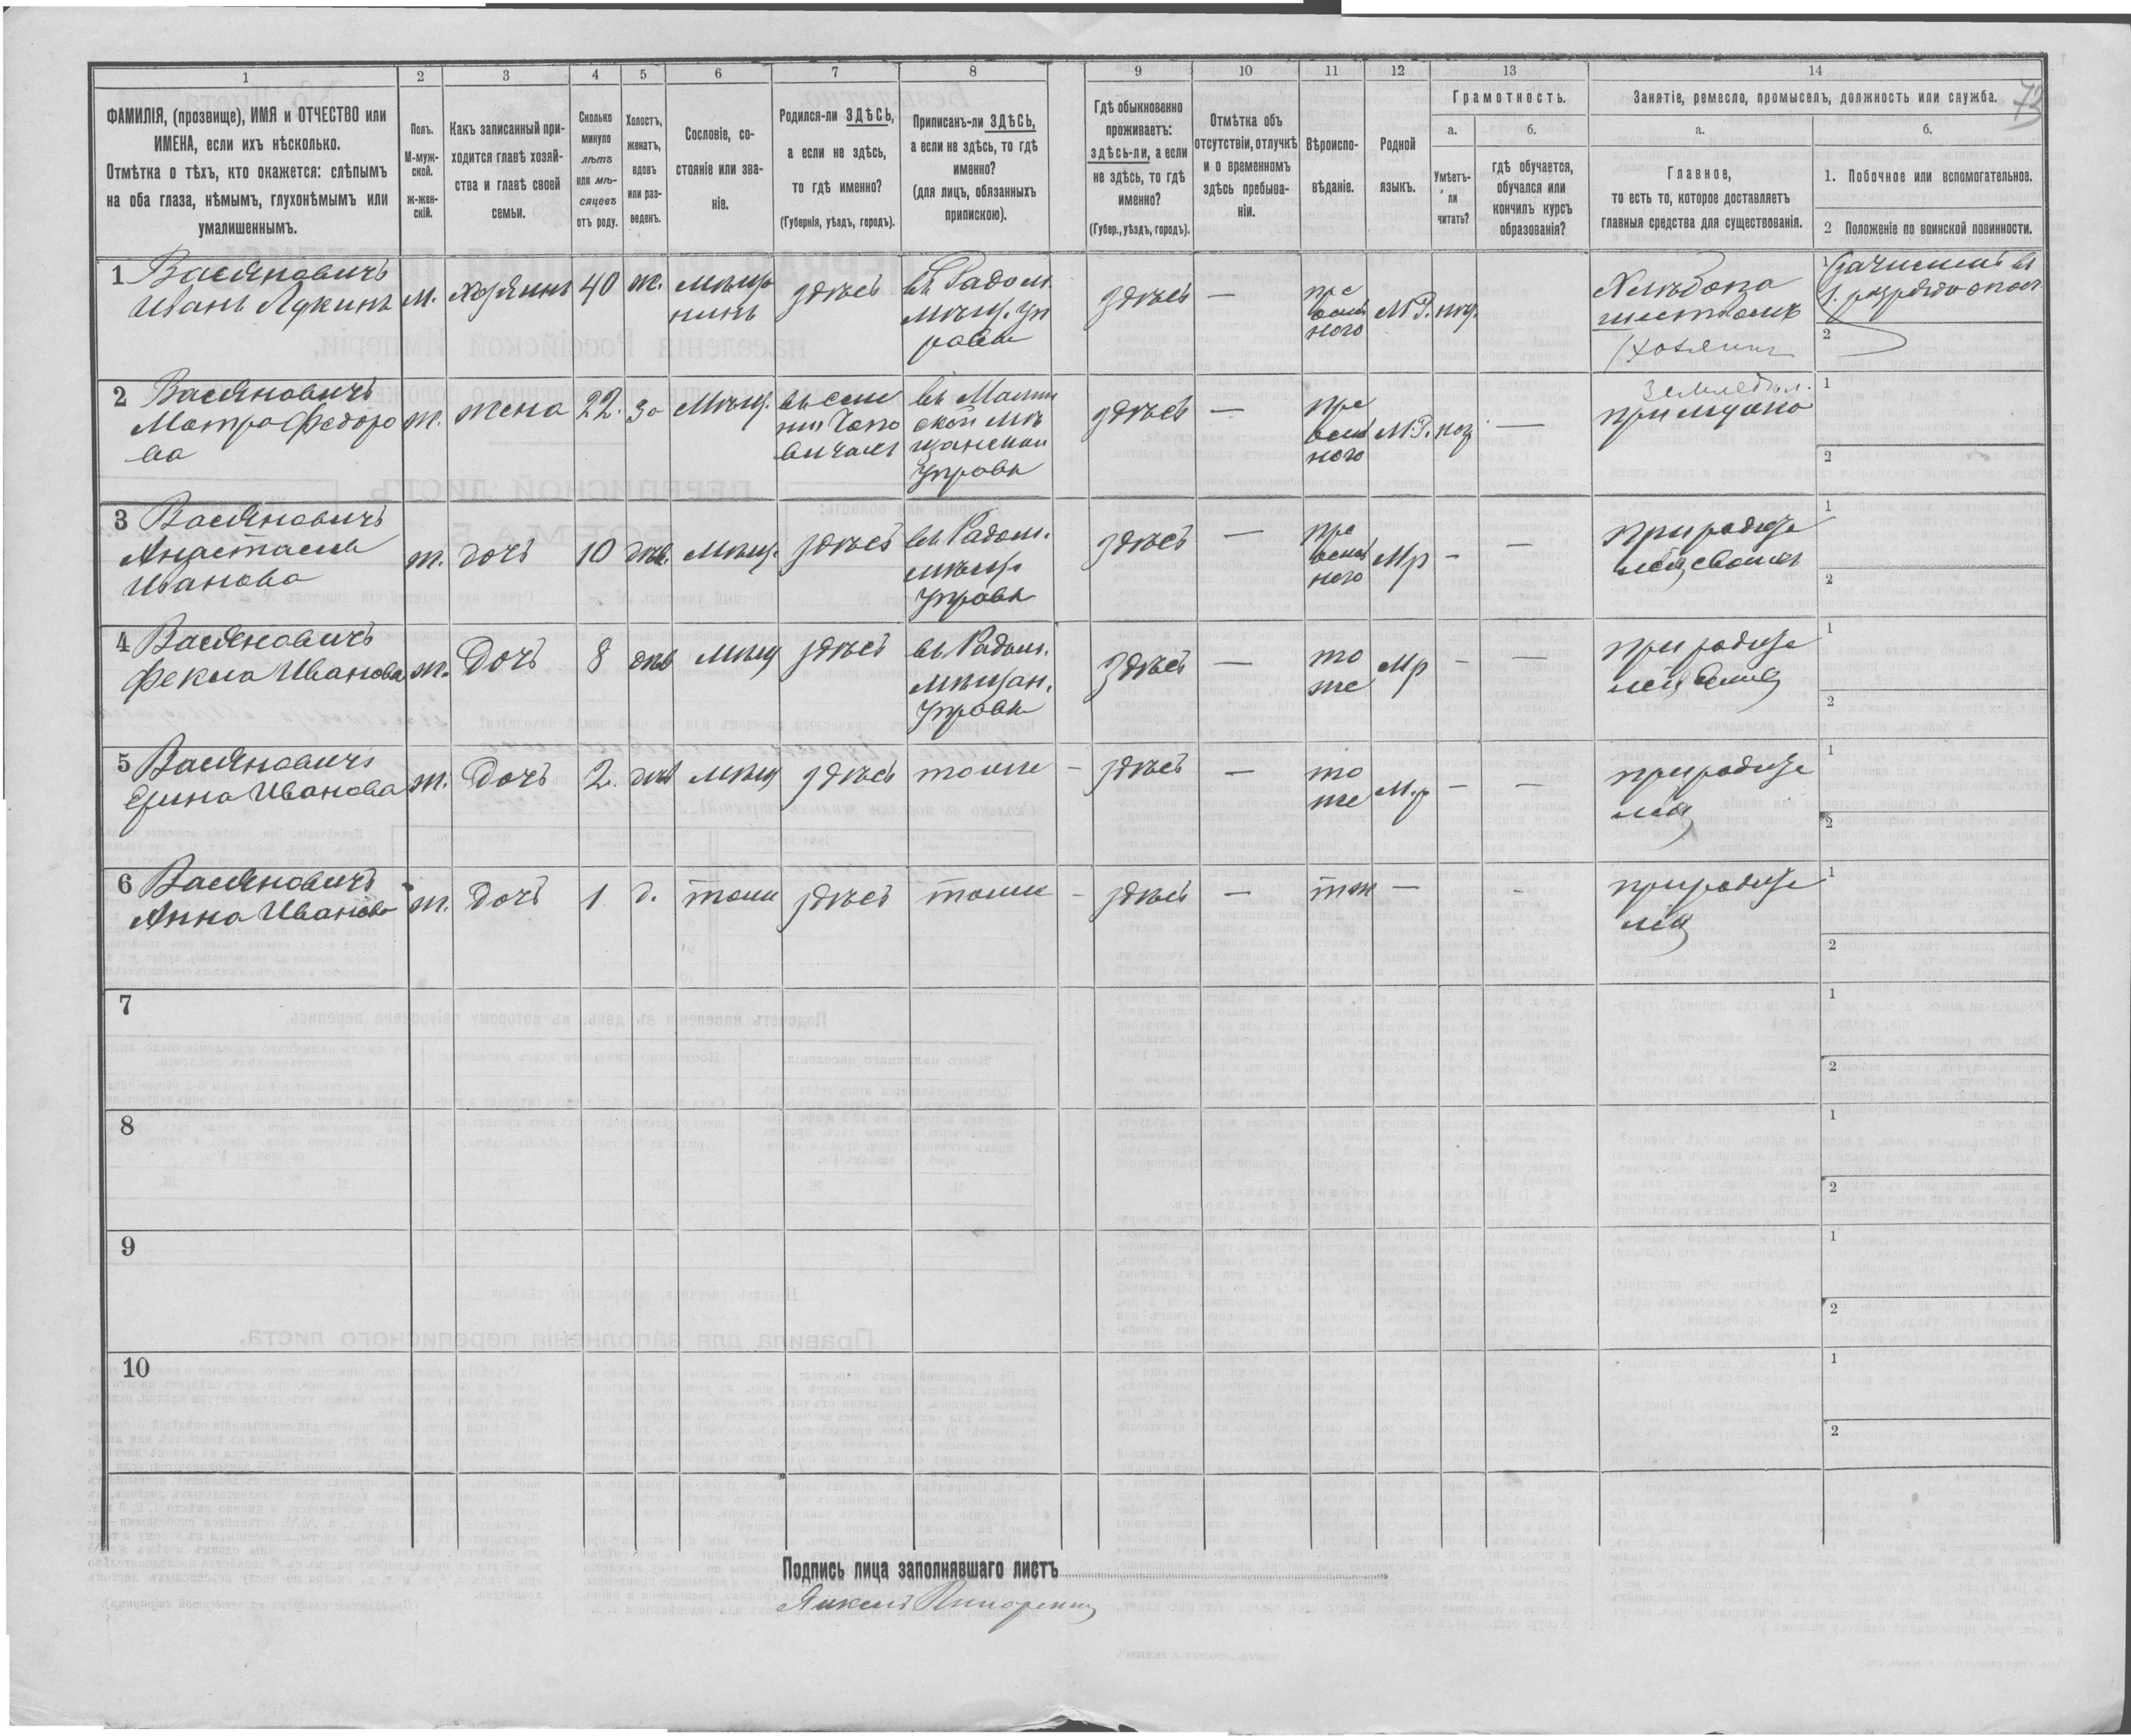 1 2 3 4 5 6 7 8 9 10 11 12 13 14
73
ФАМИЛІЯ, (прозвище), ИМЯ и ОТЧЕСТВО или
ИМЕНА, если ихъ нѣсколько.
Отмѣтка о тѣхъ, кто окажется: слѣпымъ
на оба глаза, нѣмымъ, глухонѣмымъ или
умалишеннымъ.
Полъ.
М-муж-
ской.
ж-жен-
скій.
Какъ записанный при-
ходится главѣ хозяй-
ства и главѣ своей
семьи.
Сколько
минуло
лѣтъ
или мѣ-
сяцевъ
отъ роду.
Холостъ,
женатъ,
вдовъ
или раз-
веденъ.
Сословіе, со-
стояніе или зва-
ніе.
Родился-ли ЗДѢСЬ,
а если не здѣсь,
то гдѣ именно?
(Губернія, уѣздъ, городъ).
Приписанъ-ли ЗДѢСЬ,
а если не здѣсь, то гдѣ
именно?
(для лицъ, обязанныхъ
припискою).
Гдѣ обыкновенно
проживаетъ:
здѣсь-ли, а если
не здѣсь, то гдѣ
именно?
(Губер., уѣздъ, городъ).
Отмѣтка объ
отсутствіи, отлучкѣ
и о временномъ
здѣсь пребыва-
ніи.
Вѣроиспо-
вѣданіе.
Родной
языкъ.
Грамотность.
а.
Умѣетъ-
ли
читать?
б.
гдѣ обучается,
обучался или
кончилъ курсъ
образованія?
Занятіе, ремесло, промыселъ, должность или служба.
а.
Главное,
то есть то, которое доставляетъ
главныя средства для существованія.
б.
1. Побочное или вспомогательное.
2 Положеніе по воинской повинности.
1 Васяновичъ
Иванъ Лукинъ
м.
хозяинъ
40
ж.
мѣща
нинъ
здѣсь
въ Радом.
мѣщ. уп
равы
здѣсь —
пра
вослав
ного
МР.
Хлѣбопа
шество
Хозяинъ
1
2
2 Васяновичъ
Мотра Федоро
ва
ж.
жена
22.
за
Мѣщ.
въ селе
нии Чопо
вичахъ
въ Малин
ской мѣ
щанской
управы
здѣсь —
пра
вослав
ного
МР.
—
Земледѣл.
при мужѣ
1
2
3 Васяновичъ
Анастасия
Иванова
ж.
дочь
10
дѣв.
Мѣщ.
здѣсь
въ Радом.
мѣщ.
управы
здѣсь —
пра
вослав
ного
Мр
— —
при родите
ляхъ своихъ
1
2
4 Васяновичъ
Фекла Иванова
ж.
Дочь
8
дѣв
Мѣщ
здѣсь
въ Радом.
мѣщан.
управы
здѣсь —
то
же
Мр
— —
при родите
ляхъ
1
2
5 Васяновичъ
Ерина Иванова
ж.
Дочь
2.
дѣв
Мѣщ
здѣсь
тоже —
здѣсь —
то
же
М.р
— —
при родите
ляхъ
1
2
6 Васяновичъ
Анна Иванова
ж.
Дочь
1
д.
тоже
здѣсь
тоже —
здѣсь —
тож —
-
при родите
ляхъ
1
2
7
1
2
8
1
2
9
1
2
10
1
2
Подпись лица заполнявшаго листъ